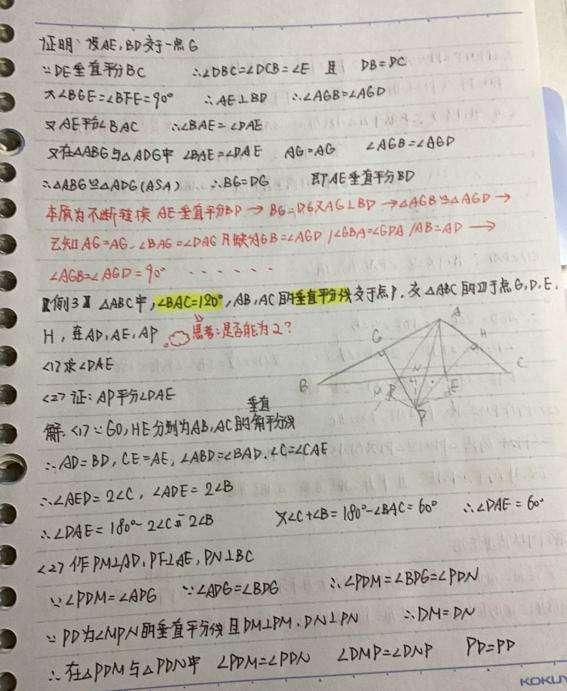 证明：设AE,BD交于一点G
∵DE垂直平分BC ∴∠DBC=∠DCB=∠E 且 DB=DC
又∠BGE=∠BFE=90° ∴AE⊥BD ∴∠AGB=∠AGD
又AE平分∠BAC ∴∠BAE=∠DAE
又在△ABG与△ADG中 ∠BAE=∠DAE AG=AG ∠AGB=∠AGD
∴△ABG≌△ADG(ASA) ∴BG=DG 即AE垂直平分BD
本质为不断转换 AE垂直平分BD→BG=DG又AG⊥BD→△AGB≌△AGD→
已知AG=AG,∠BAG=∠DAG 只缺∠AGB=∠AGD/∠GBA=∠GDA/AB=AD→
∠AGB=∠AGD=90° ......
【例3】△ABC中,∠BAC=120°,AB,AC的垂直平分线交于点P,交△ABC的边于点G,D,E,
H,连AD,AE,AP 思考:是否能为2?
<1>求∠DAE
<2>证:AP平分∠DAE
A
G
H
B
D
E
C
M
N
P
垂直
解.<1>∵GD,HE分别为AB,AC的角平分线
∴AD=BD,CE=AE,∠ABD=∠BAD.∠C=∠CAE
∴∠AED=2∠C,∠ADE=2∠B
∴∠DAE=180°-2∠C-2∠B 又∠C+∠B=180°-∠BAC=60° ∴∠DAE=60°
<2>作PM⊥AD,PF⊥AE,PN⊥BC
∵∠PDM=∠ADG ∵∠ADG=∠BDG ∴∠PDM=∠BDG=∠PDN
∵PD为∠MPN的垂直平分线且DM⊥PM,DN⊥PN ∴DM=DN
∴在△PDM与△PDN中 ∠PDM=∠PDN ∠DMP=∠DNP PD=PD
KOKUY